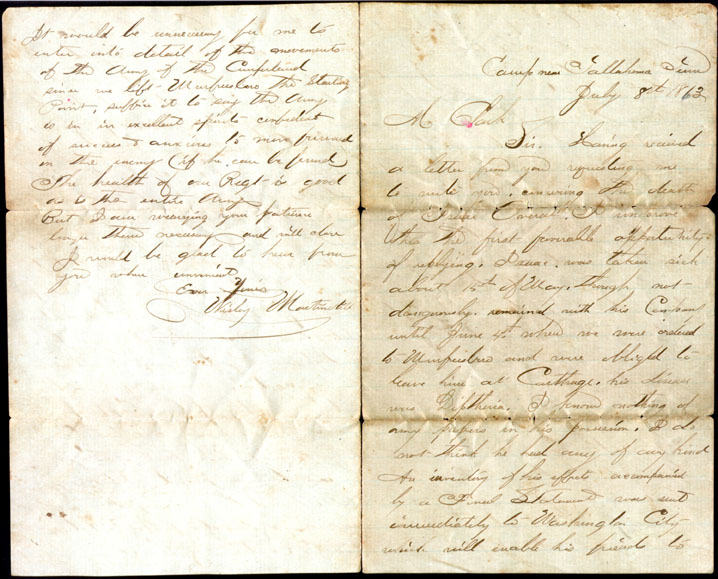 Camp near Tallahoma Tenn
July 8th 1863
Mr Park
Sir. Having received
a letter from you requesting me
to write you, concerning the death
of Isaac I
the first favorable opportunity
of replying. Isaac was taken sick
about 15th of May, though not
dangerously. remained with his Company
until June 4th when we were ordered
to Murfreesboro and were obliged to
leave him at Carthage. his disease
was Diptheria. I know nothing of
any papers in his possession. I do
not think he had any of any kind
An inventory of his effects accompanied
by a Final Statement was sent
immediately to Washington City
which will enable his friends to
It would be unnecessary for me to
enter into detail of the movements
of the Army of the Cumberland
since we left Murfreesboro the Starting
Point, suffice it to say the Army
is in in excellent spirits confident
of success & anxious to move forward
on the enemy (if he can be found
The health of our Regt is good
as is the entire Army
But I am wearying your patience
longer than necessary and will close
I would be glad to hear from
you when convenient
Ever Yours
Wesley